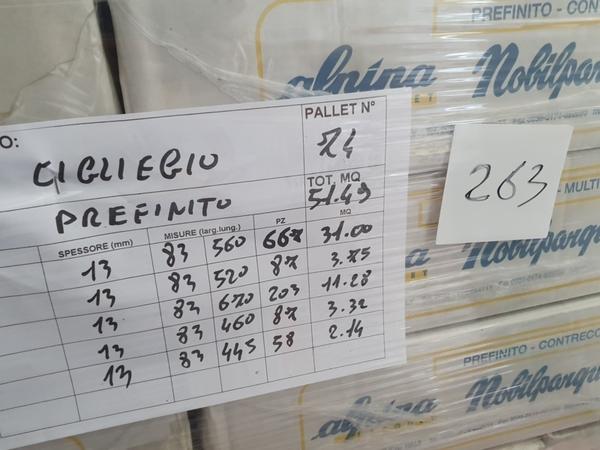 PREFINITO - CON
alpina
Nobilparq
O:
CIGLIEGIO
PALLET N°
74
PREFINITO
TOT. MQ
51.49
SPESSORE (mm) MISURE (larg.lung.) PZ MQ
13 83 560 667 31.00
13 83 520 87 3.75
13 83 670 203 11.28
13 83 460 87 3.32
13 83 445 58 2.14
263
MULTI
Nobilparqu
PREFINITO - CONTRECC
alpina
Nobilparqu